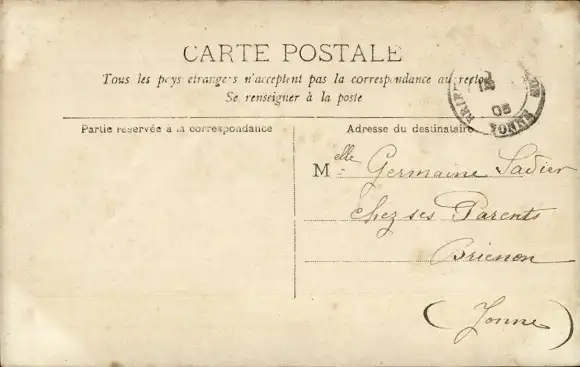 CARTE POSTALE
Tous les pays etrangers n'acceptent pas la correspondance au recto
Se renseigner à la poste
Partie réservée à la correspondance
Adresse du destinataire
Melle Germaine Sadier
chez ses Parents
Brienon
(Yonne)
05
YONNE